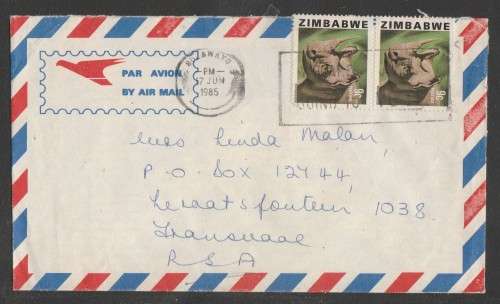 ZIMBABWE ZIMBABWE
PAR AVION
BY AIR MAIL
BULAWAYO
PM
7 JUN
1985
9c 9c
Miss Linda Malan,
P.O. Box 12744,
Leraatsfontein 1038.
Transvaal
RSA